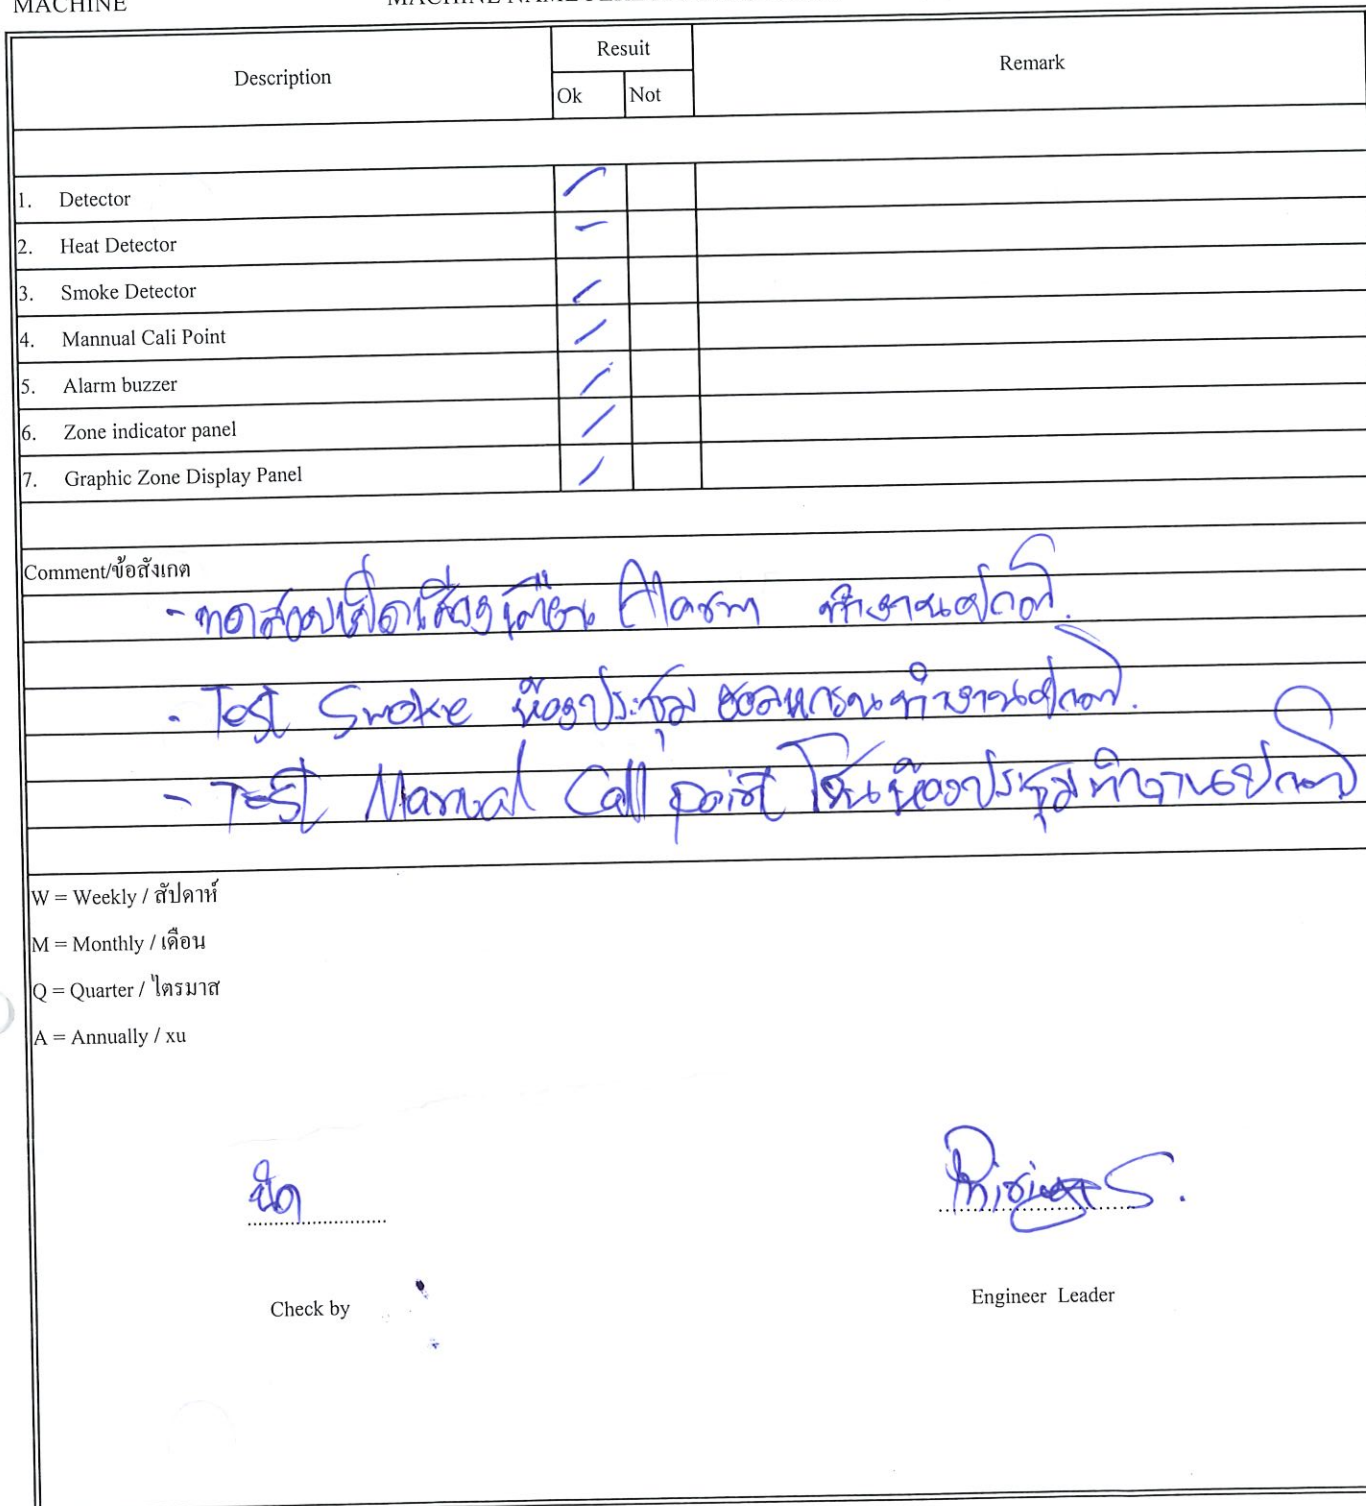 MACHINE
Description Resuit Remark
Ok Not
1. Detector
2. Heat Detector
3. Smoke Detector
4. Mannual Cali Point
5. Alarm buzzer
6. Zone indicator panel
7. Graphic Zone Display Panel
Comment/ข้อสังเกต
- ทดสอบเปิดเสียงเตือน Alarm ทำงานปกติ.
- Test Smoke ห้องประชุม ทำงานปกติ.
- Test Manual Call point โซนห้องประชุมทำงานปกติ
W = Weekly / สัปดาห์
M = Monthly / เดือน
Q = Quarter / ไตรมาส
A = Annually / xu
Check by
Engineer Leader